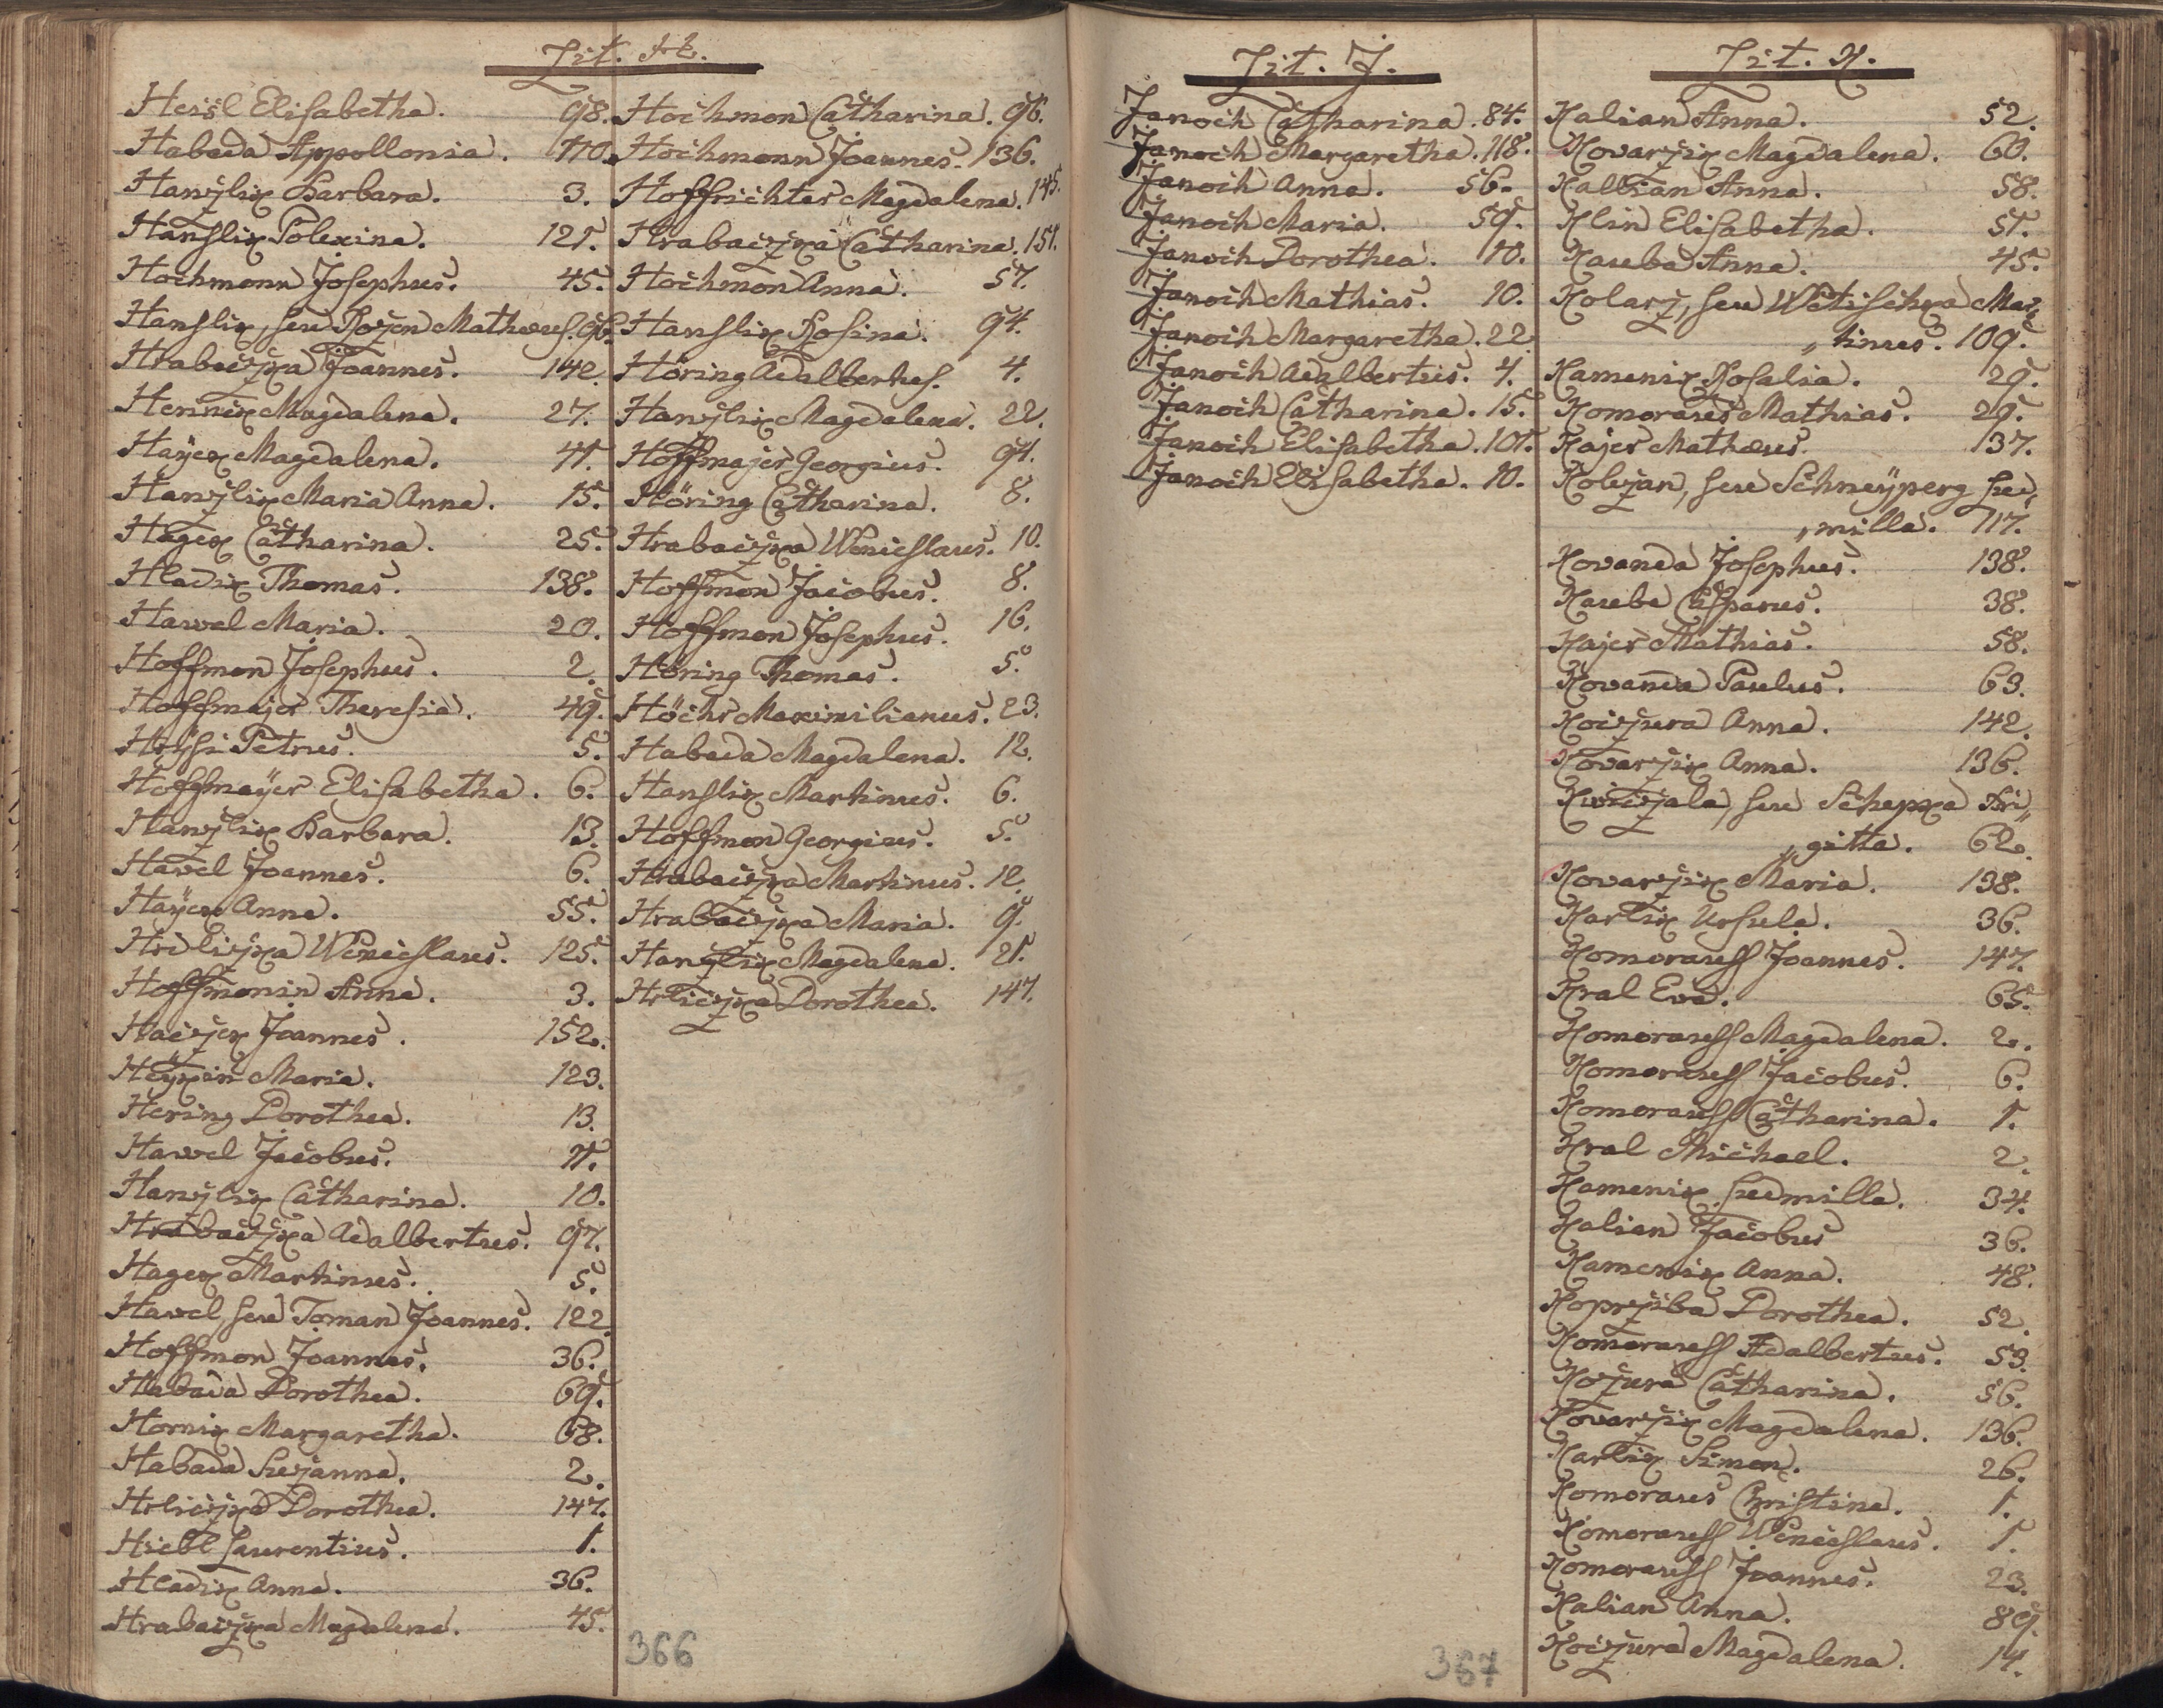 Lit. H.
Heisl Elisabetha. 98.
Habada Appollonia. 110.
Hanzlik Barbara. 3.
Hanslik Polexina. 121.
Hochmonn Josephus. 45.
Hanslik, seu Rozen Mathæus. 96.
Hrabaczka Joannes. 142.
Hennix Magdalena. 27.
Hayek Magdalena. 41.
Hanzlik Maria Anna. 15.
Hagek Catharina. 25.
Hladik Thomas. 138.
Hawel Maria. 20.
Hoffmon Josephus. 2.
Hoffmajer Theresia. 49.
Petrus. 5.
Hoffmayer Elisabetha. 6.
Hanzlik Barbara. 13.
Havel Joannes. 6.
Hayek Anna. 55.
Hrdliczka Wenceslaus. 125.
Hoffmonin Anna. 3.
Haczek Joannes. 152.
Heykin Maria. 123.
Hering Dorothea. 13.
Hawel Jacobus. 11.
Hanzlik Catharina. 10.
Hrabaczka Adalbertus. 97.
Hagek Martinus. 5.
Hawel, seu Toman Joannes. 122.
Hoffmon Joannes. 36.
Habada Dorothea. 69.
Hornik Margaretha. 68.
Habada Suzanna. 2.
Hrliczka Dorothea. 147.
Hiebl Laurentius. 1.
Hladik Anna. 36.
Hrabaczka Magdalena. 45.
Hochmon Catharina. 96.
Hochmonn Joannes. 136.
Hoffrichter Magdalena. 145.
Hrabaczka Catharina. 151.
Hochmon Anna. 57.
Hanslik Rosina. 94.
Höring Adalbertus. 4.
Hanzlik Magdalena. 22.
Hoffmajer Georgius. 91.
Höring Catharina. 8.
Hrabaczka Wenceslaus. 10.
Hoffmon Jacobus. 8.
Hoffmon Josephus. 16.
Höring Thomas. 5.
Höchs Maximilianus. 23.
Habada Magdalena. 12.
Hanslik Martinus. 6.
Hoffmon Georgius. 5.
Hrabaczka Martinus. 12.
Hrabaczka Maria. 9.
Hanzlik Magdalena. 21.
Hrliczka Dorothea. 147.
366
Lit. J.
Janoch Catharina. 84.
Janoch Margaretha. 118.
Janoch Anna. 56.
Janoch Maria. 59.
Janoch Dorothea. 10.
Janoch Mathias. 10.
Janoch Margaretha. 22
Janoch Adalbertus. 4.
Janoch Catharina. 15.
Janoch Elisabetha. 101.
Janoch Elisabetha. 10.
367
Lit. K.
Kalian Anna. 52.
Kovarzik Magdalena. 60.
Kallian Anna. 58.
Klin Elisabetha. 51.
Kauba Anna. 45.
Kolarz, seu Wetischka Mar,,
,,tinus. 109.
Kamenik Rosalia. 29.
Komoraus Mathias. 29.
Kajer Mathæus. 137.
Kolezan, seu Schneyperg Lud,,
,,milla. 117.
Kovanda Josephus. 138.
Kauba Casparus. 38.
Kajer Mathias. 58.
Kovanda Paulus. 63.
Koczura Anna. 142.
Kovarzik Anna. 136.
Kwiczala, seu Schepka Bri,,
,,gitta. 62.
Kovarzik Maria. 138.
Karlik Ursula. 36.
Komorauss Joannes. 147.
Kral Eva. 65.
Komorauss Magdalena. 2.
Komorauss Jacobus. 6.
Komorauss Catharina. 1.
Kral Michael. 2.
Kamenik Ludmilla. 34.
Kalian Jacobus 36.
Kamenik Anna. 48.
Koprziba Dorothea. 52.
Komorauss Adalbertus. 53.
Kozura Catharina. 56.
Kovarzik Magdalena. 136.
Karlik Simon. 26.
Komoraus Christina. 1.
Komorauss Wenceslaus. 1.
Komorauss Joannes. 23.
Kalian Anna. 89.
Koczura Magdalena. 14.